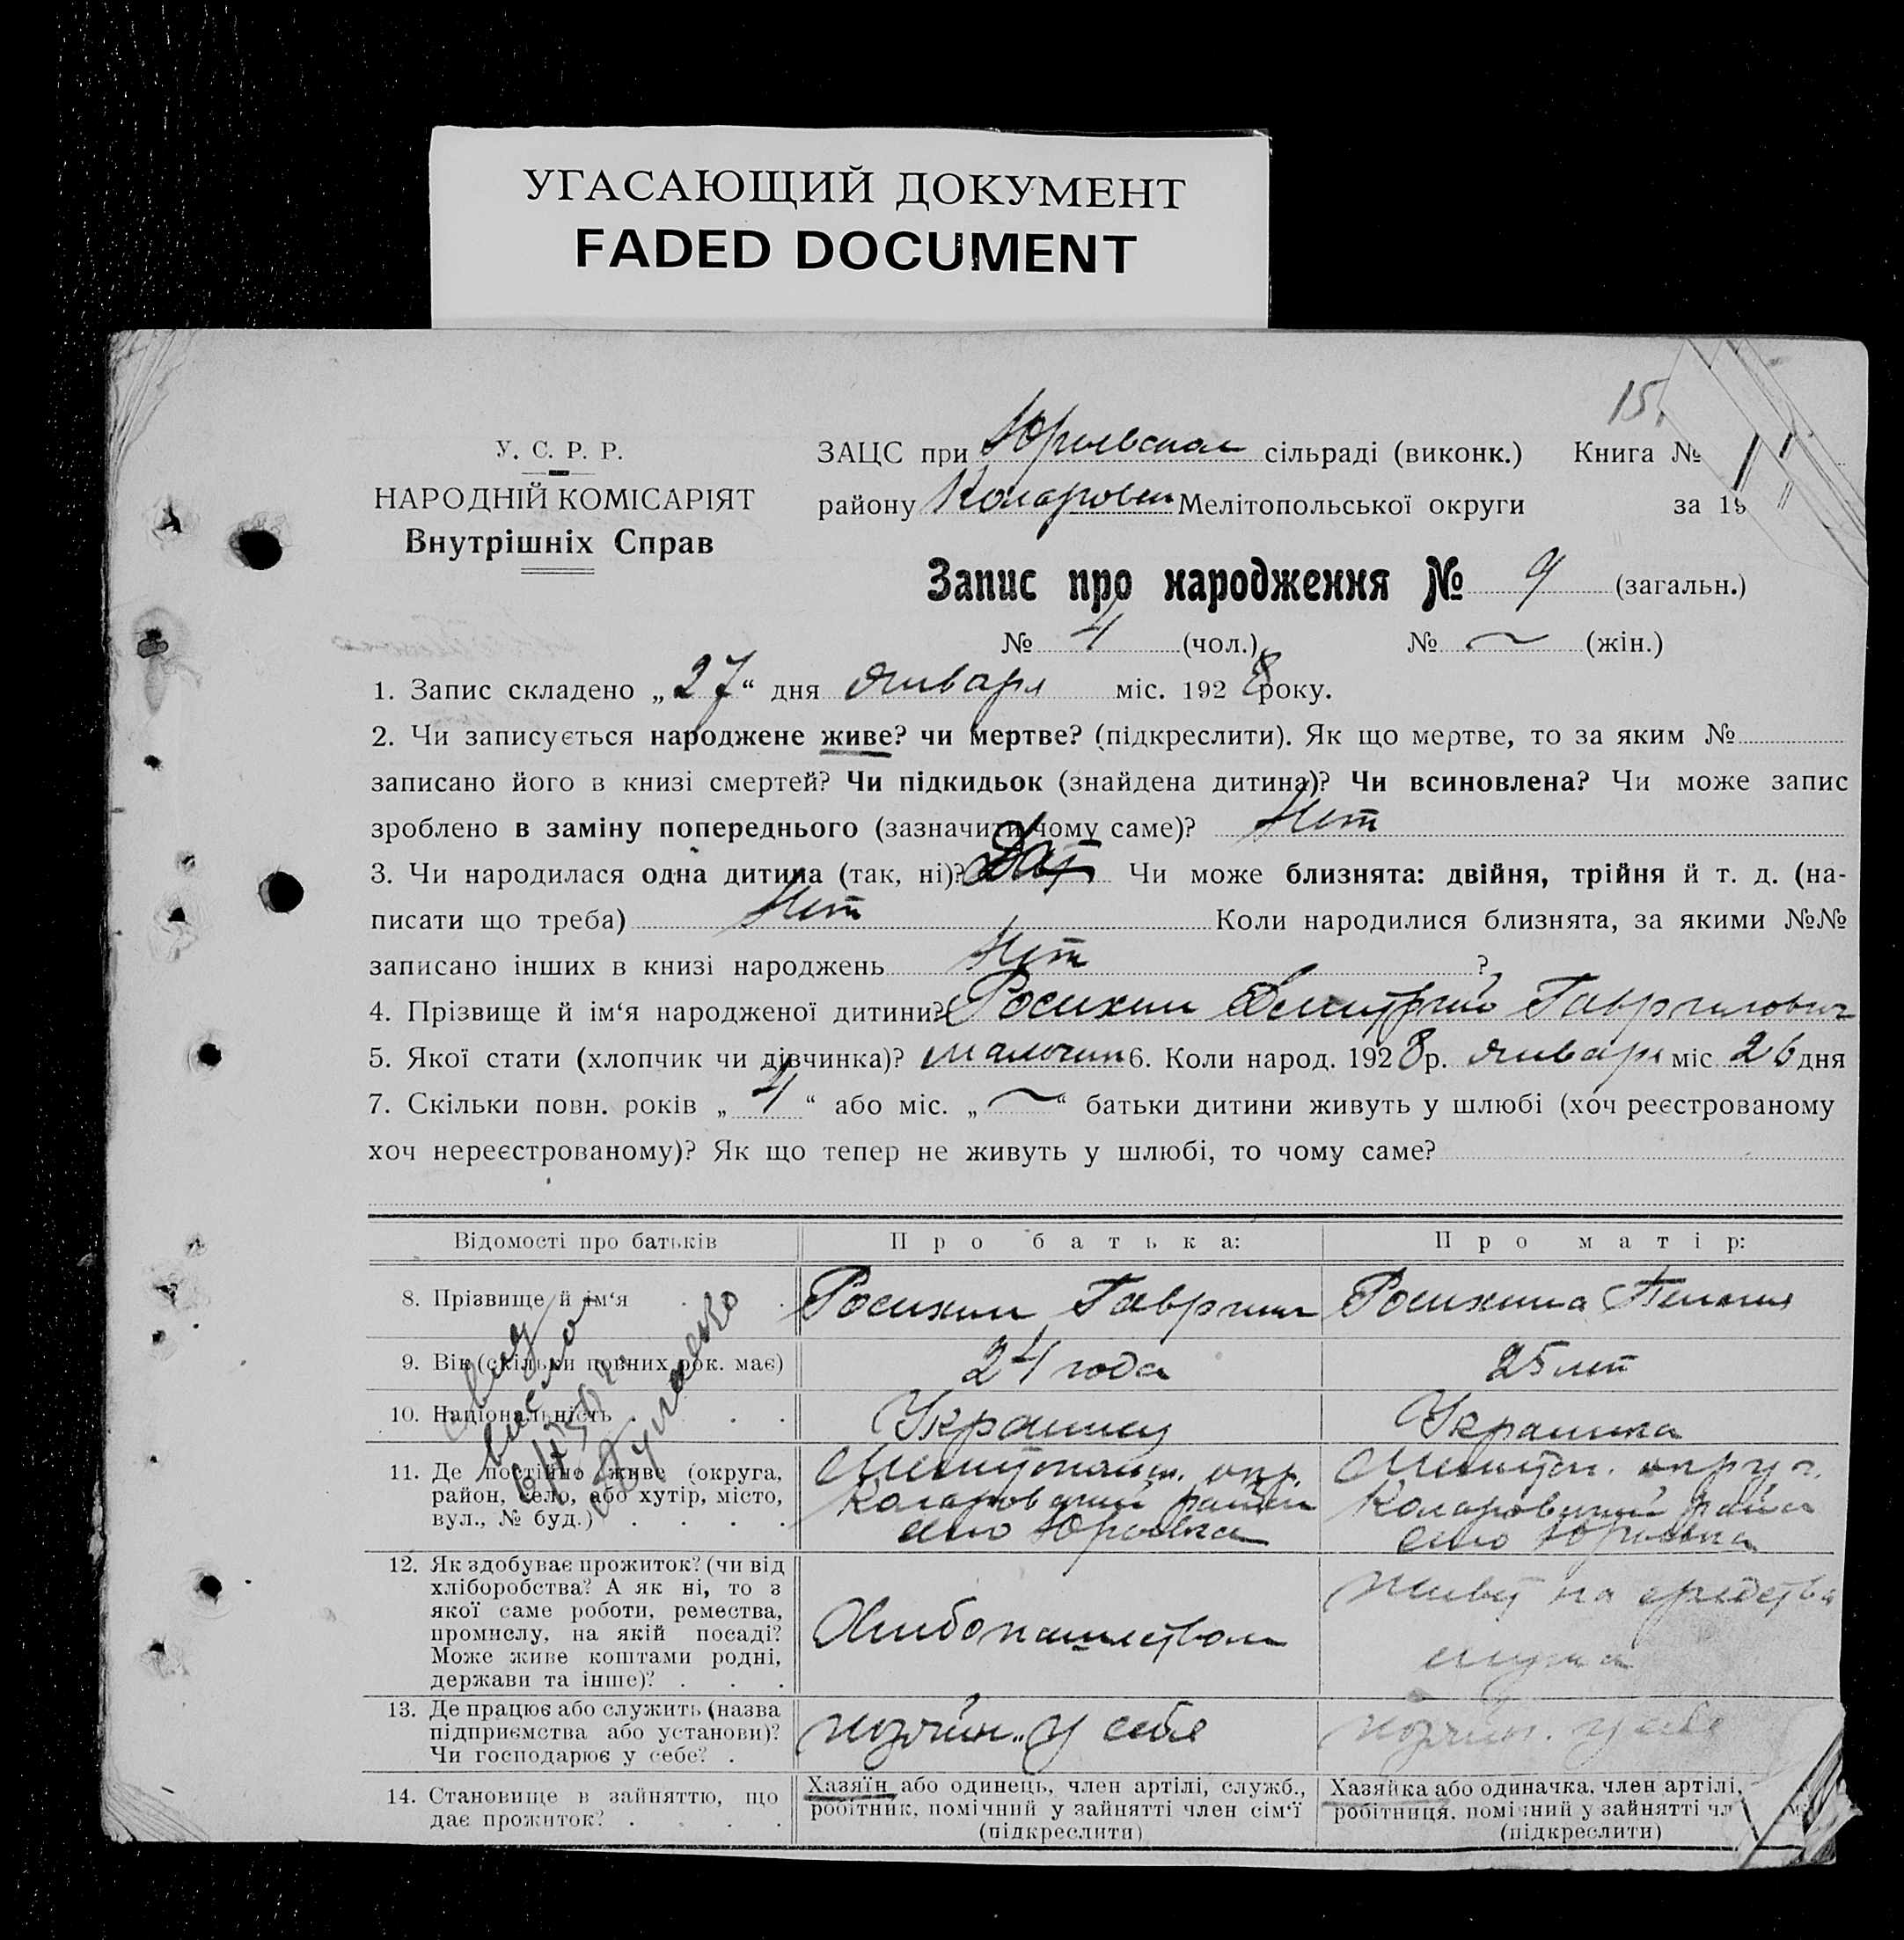 УГАСАЮЩИЙ ДОКУМЕНТ
FADED DOCUMENT
15.
У. С. Р. Р.
НАРОДНІЙ КОМІСАРІЯТ
Внутрішніх Справ
ЗАЦС при Юрьевском сільраді (виконк.) Книга № 1
району Коларовск Мелітопольської округи за 19
Запис про народження № 9 (загальн.)
№ 4 (чол.) № ~ (жін.)
1. Запис складено „27“ дня января міс. 1928 року.
2. Чи записується народжене живе? чи мертве? (підкреслити). Як що мертве, то за яким №
записано його в книзі смертей? Чи підкидьок (знайдена дитина)? Чи всиновлена? Чи може запис
зроблено в заміну попереднього (зазначити чому саме)? Нет
3. Чи народилася одна дитина (так, ні)? Чи може близнята: двійня, трійня й т. д. (на-
писати що треба) Нет Коли народилися близнята, за якими №№
записано інших в книзі народжень Нет ?
4. Прізвище й ім‘я народженої дитини? Росихин Дмитрий Гаврилович
5. Якої стати (хлопчик чи дівчинка)? мальчик 6. Коли народ. 1928 р. января міс. 26 дня
7. Скільки повн. років „4“ або міс. „~“ батьки дитини живуть у шлюбі (хоч реєстрованому
хоч нереєстрованому)? Як що тепер не живуть у шлюбі, то чому саме?
Відомості про батьків
Про батька:
Про матір:
8. Прізвище й ім‘я
Росихин Гаврил
Росихина Пелагия
9. Вік (скільки повних рок. має)
24 года
25 лет
10. Національність
Украинец
Украинка
11. Де постійно живе (округа,
район, село, або хутір, місто,
вул., № буд.)
Мелитопольск. окр.
Коларовский район
село Юрьевка
Мелитоп. округ.
Коларовский район
село Юрьевка
12. Як здобуває прожиток? (чи від
хліборобства? А як ні, то з
якої саме роботи, ремества,
промислу, на якій посаді?
Може живе коштами родні,
держави та інше)?
Хлебопашеством
живет на средства
мужа
13. Де працює або служить (назва
підприємства або установи)?
Чи господарює у себе?
хозяин у себе
у себе
14. Становище в зайняттю, що
дає прожиток?
Хазяїн або одинець, член артілі, служб.,
робітник, помічний у зайнятті член сім‘ї
(підкреслити)
Хазяйка або одиначка, член артілі,
робітниця, помічний у зайнятті чл
(підкреслити)